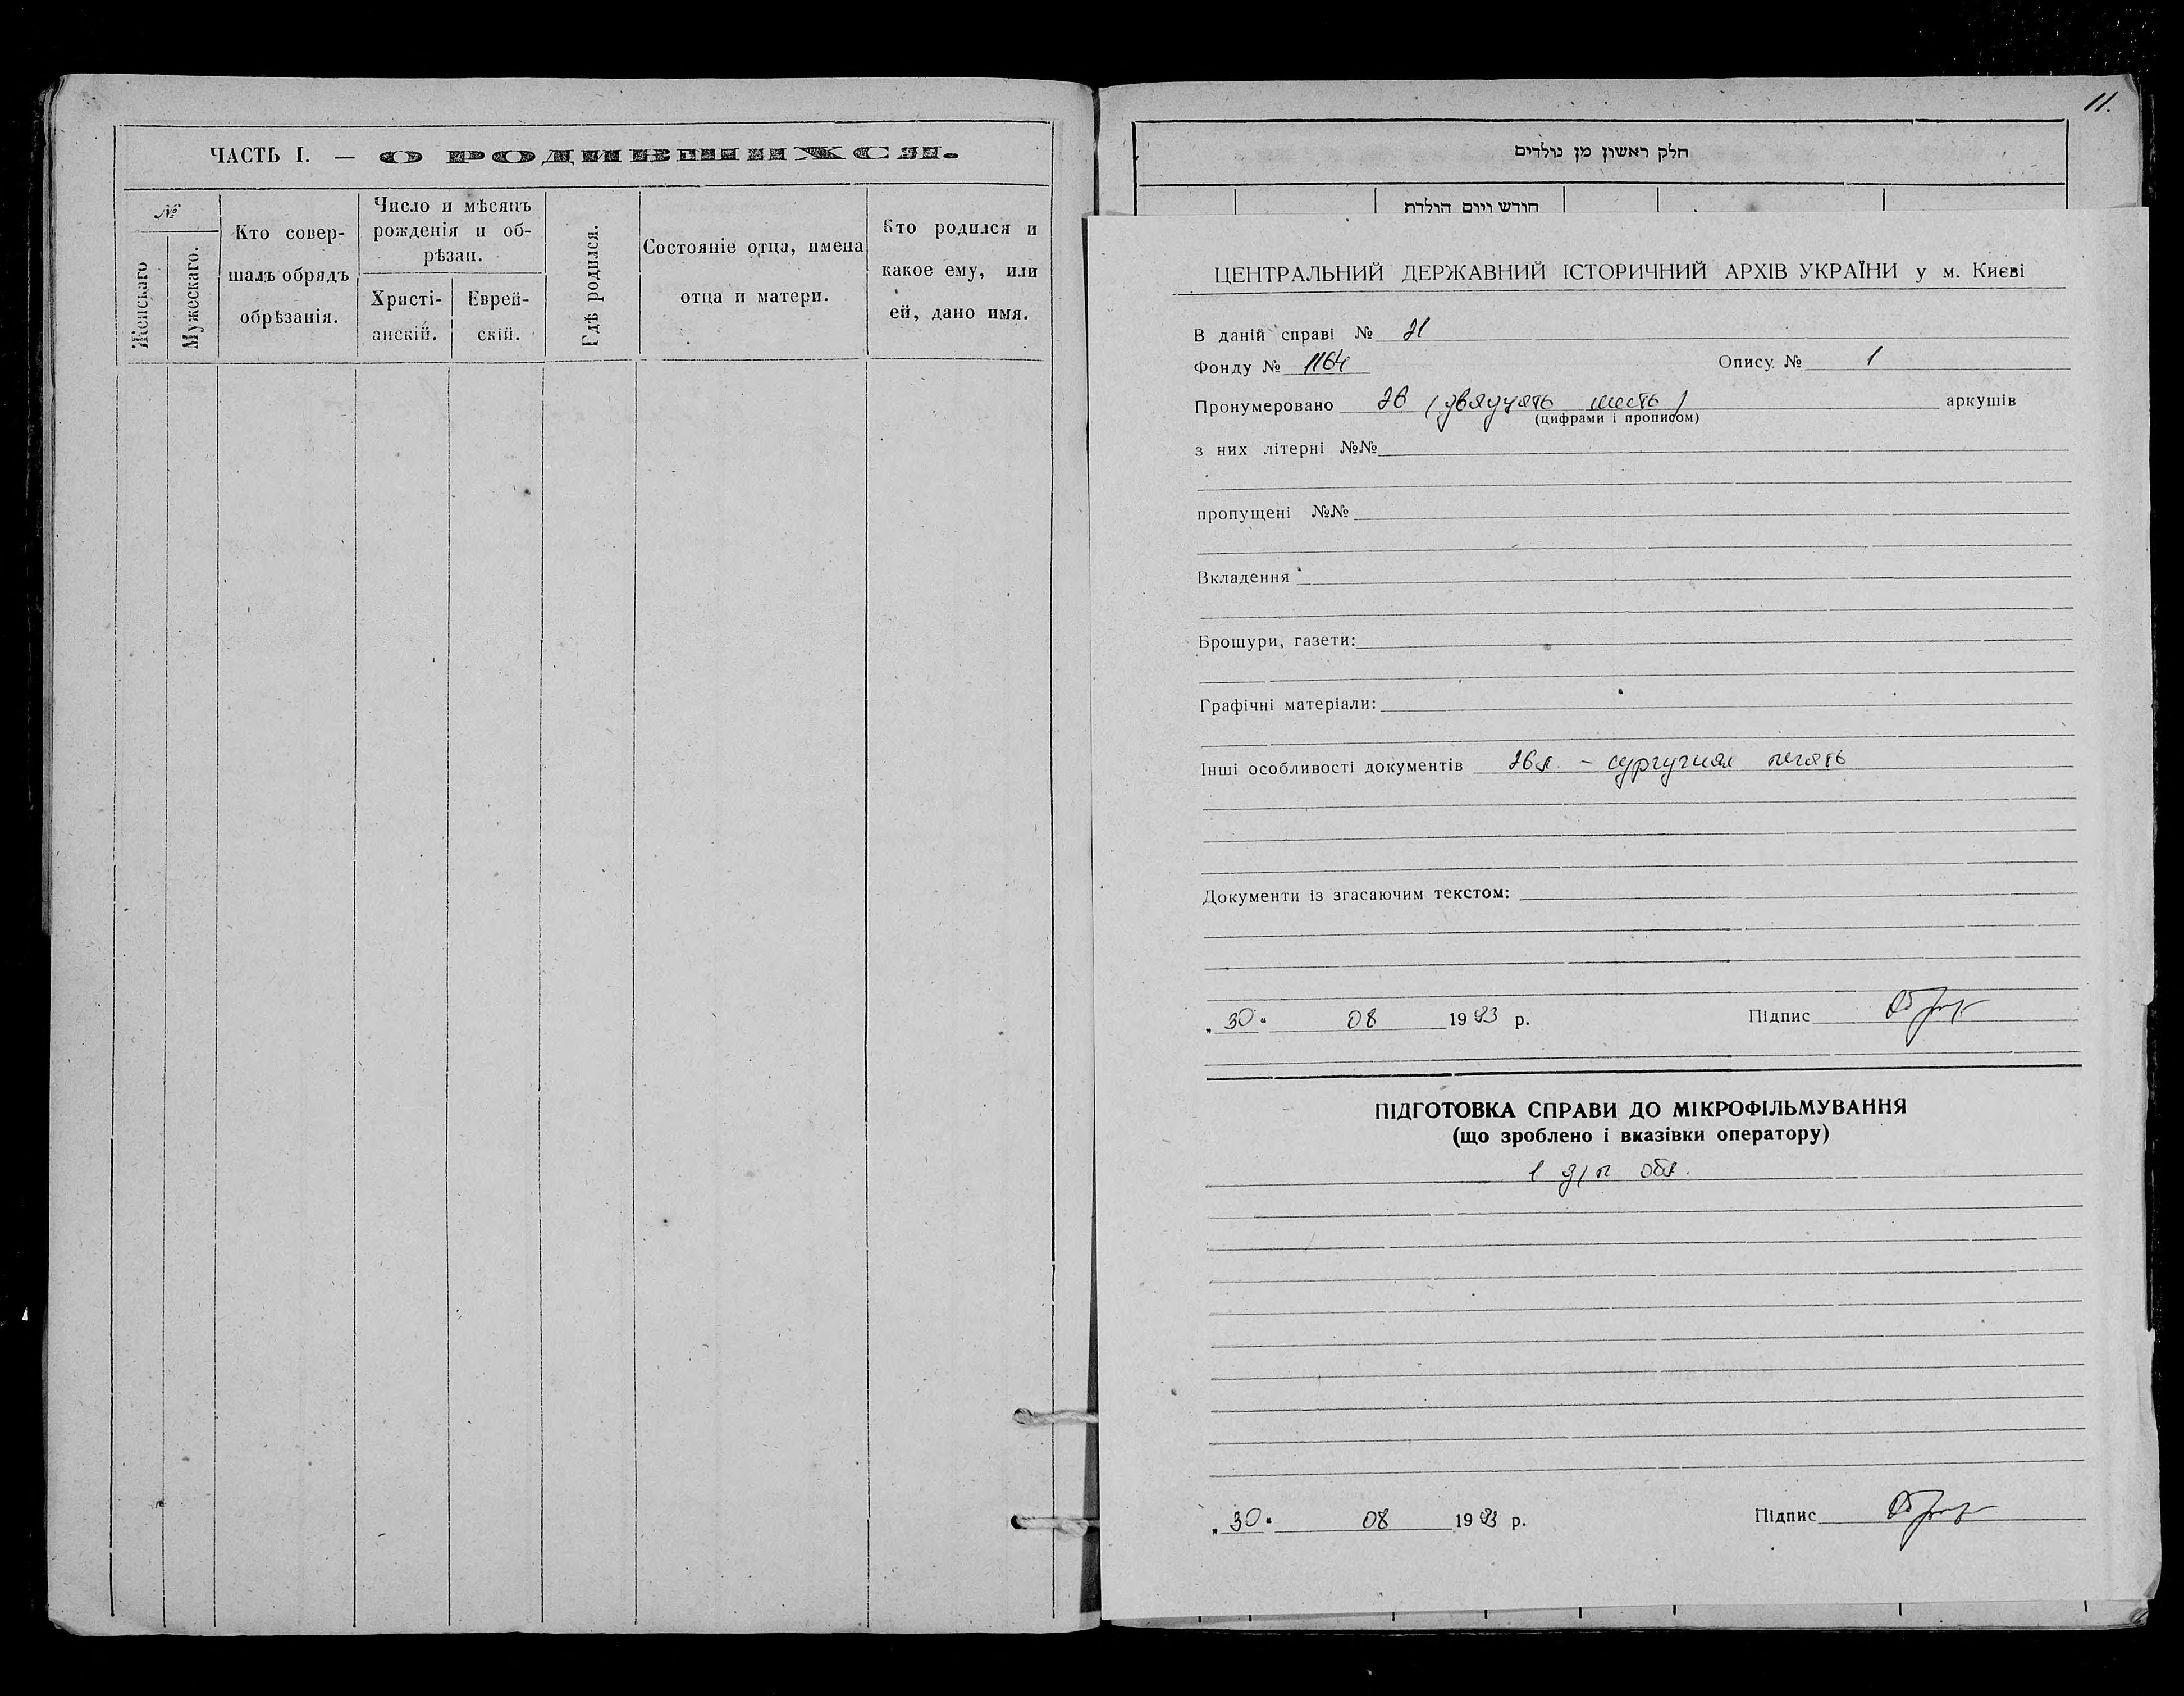 ЧАСТЬ I. — О РОДИВШИХСЯ.
№
Женскаго
Мужескаго.
Кто совер-
шалъ обрядъ
обрѣзанія.
Число и мѣсяцъ
рожденія и об-
рѣзан.
Христі-
анскій.
Еврей-
скій.
Гдѣ родился.
Состояніе отца, имена
отца и матери.
Кто родился и
какое ему, или
ей, дано имя.
11.
חלק ראשון מן נולדים
חודש ויום הולדת
ЦЕНТРАЛЬНИЙ ДЕРЖАВНИЙ ІСТОРИЧНИЙ АРХІВ УКРАЇНИ у м. Києві
В даній справі № 21
Фонду № 1164 Опису № 1
Пронумеровано 26 (двадцать шесть) аркушів
(цифрами і прописом)
з них літерні №№
пропущені №№
Вкладення
Брошури, газети:
Графічні матеріали:
Інші особливості документів 26л. - сургучная печать
Документи із згасаючим текстом:
„30“ 08 1993 р. Підпис
ПІДГОТОВКА СПРАВИ ДО МІКРОФІЛЬМУВАННЯ
(що зроблено і вказівки оператору)
„30“ 08 1993 р. Підпис